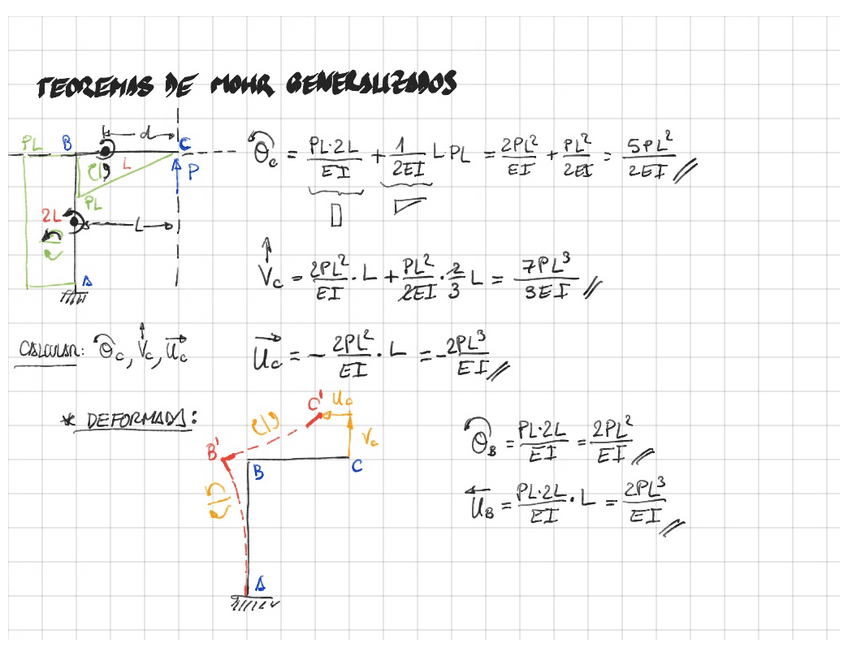 TEOREMAS DE MOHR GENERALIZADOS
PL B d C
L P
PL
2L L
A
θc = PL·2L/EI + 1/2EI L·PL = 2PL²/EI + PL²/2EI = 5PL²/2EI
Vc = 2PL²/EI · L + PL²/2EI · 2/3 L = 7PL³/3EI
CALCULAR: θc, Vc, uc
uc = - 2PL²/EI · L = -2PL³/EI
* DEFORMADA:
C' uc
Vc
B' B C
A
θB = PL·2L/EI = 2PL²/EI
uB = PL·2L/EI · L = 2PL³/EI